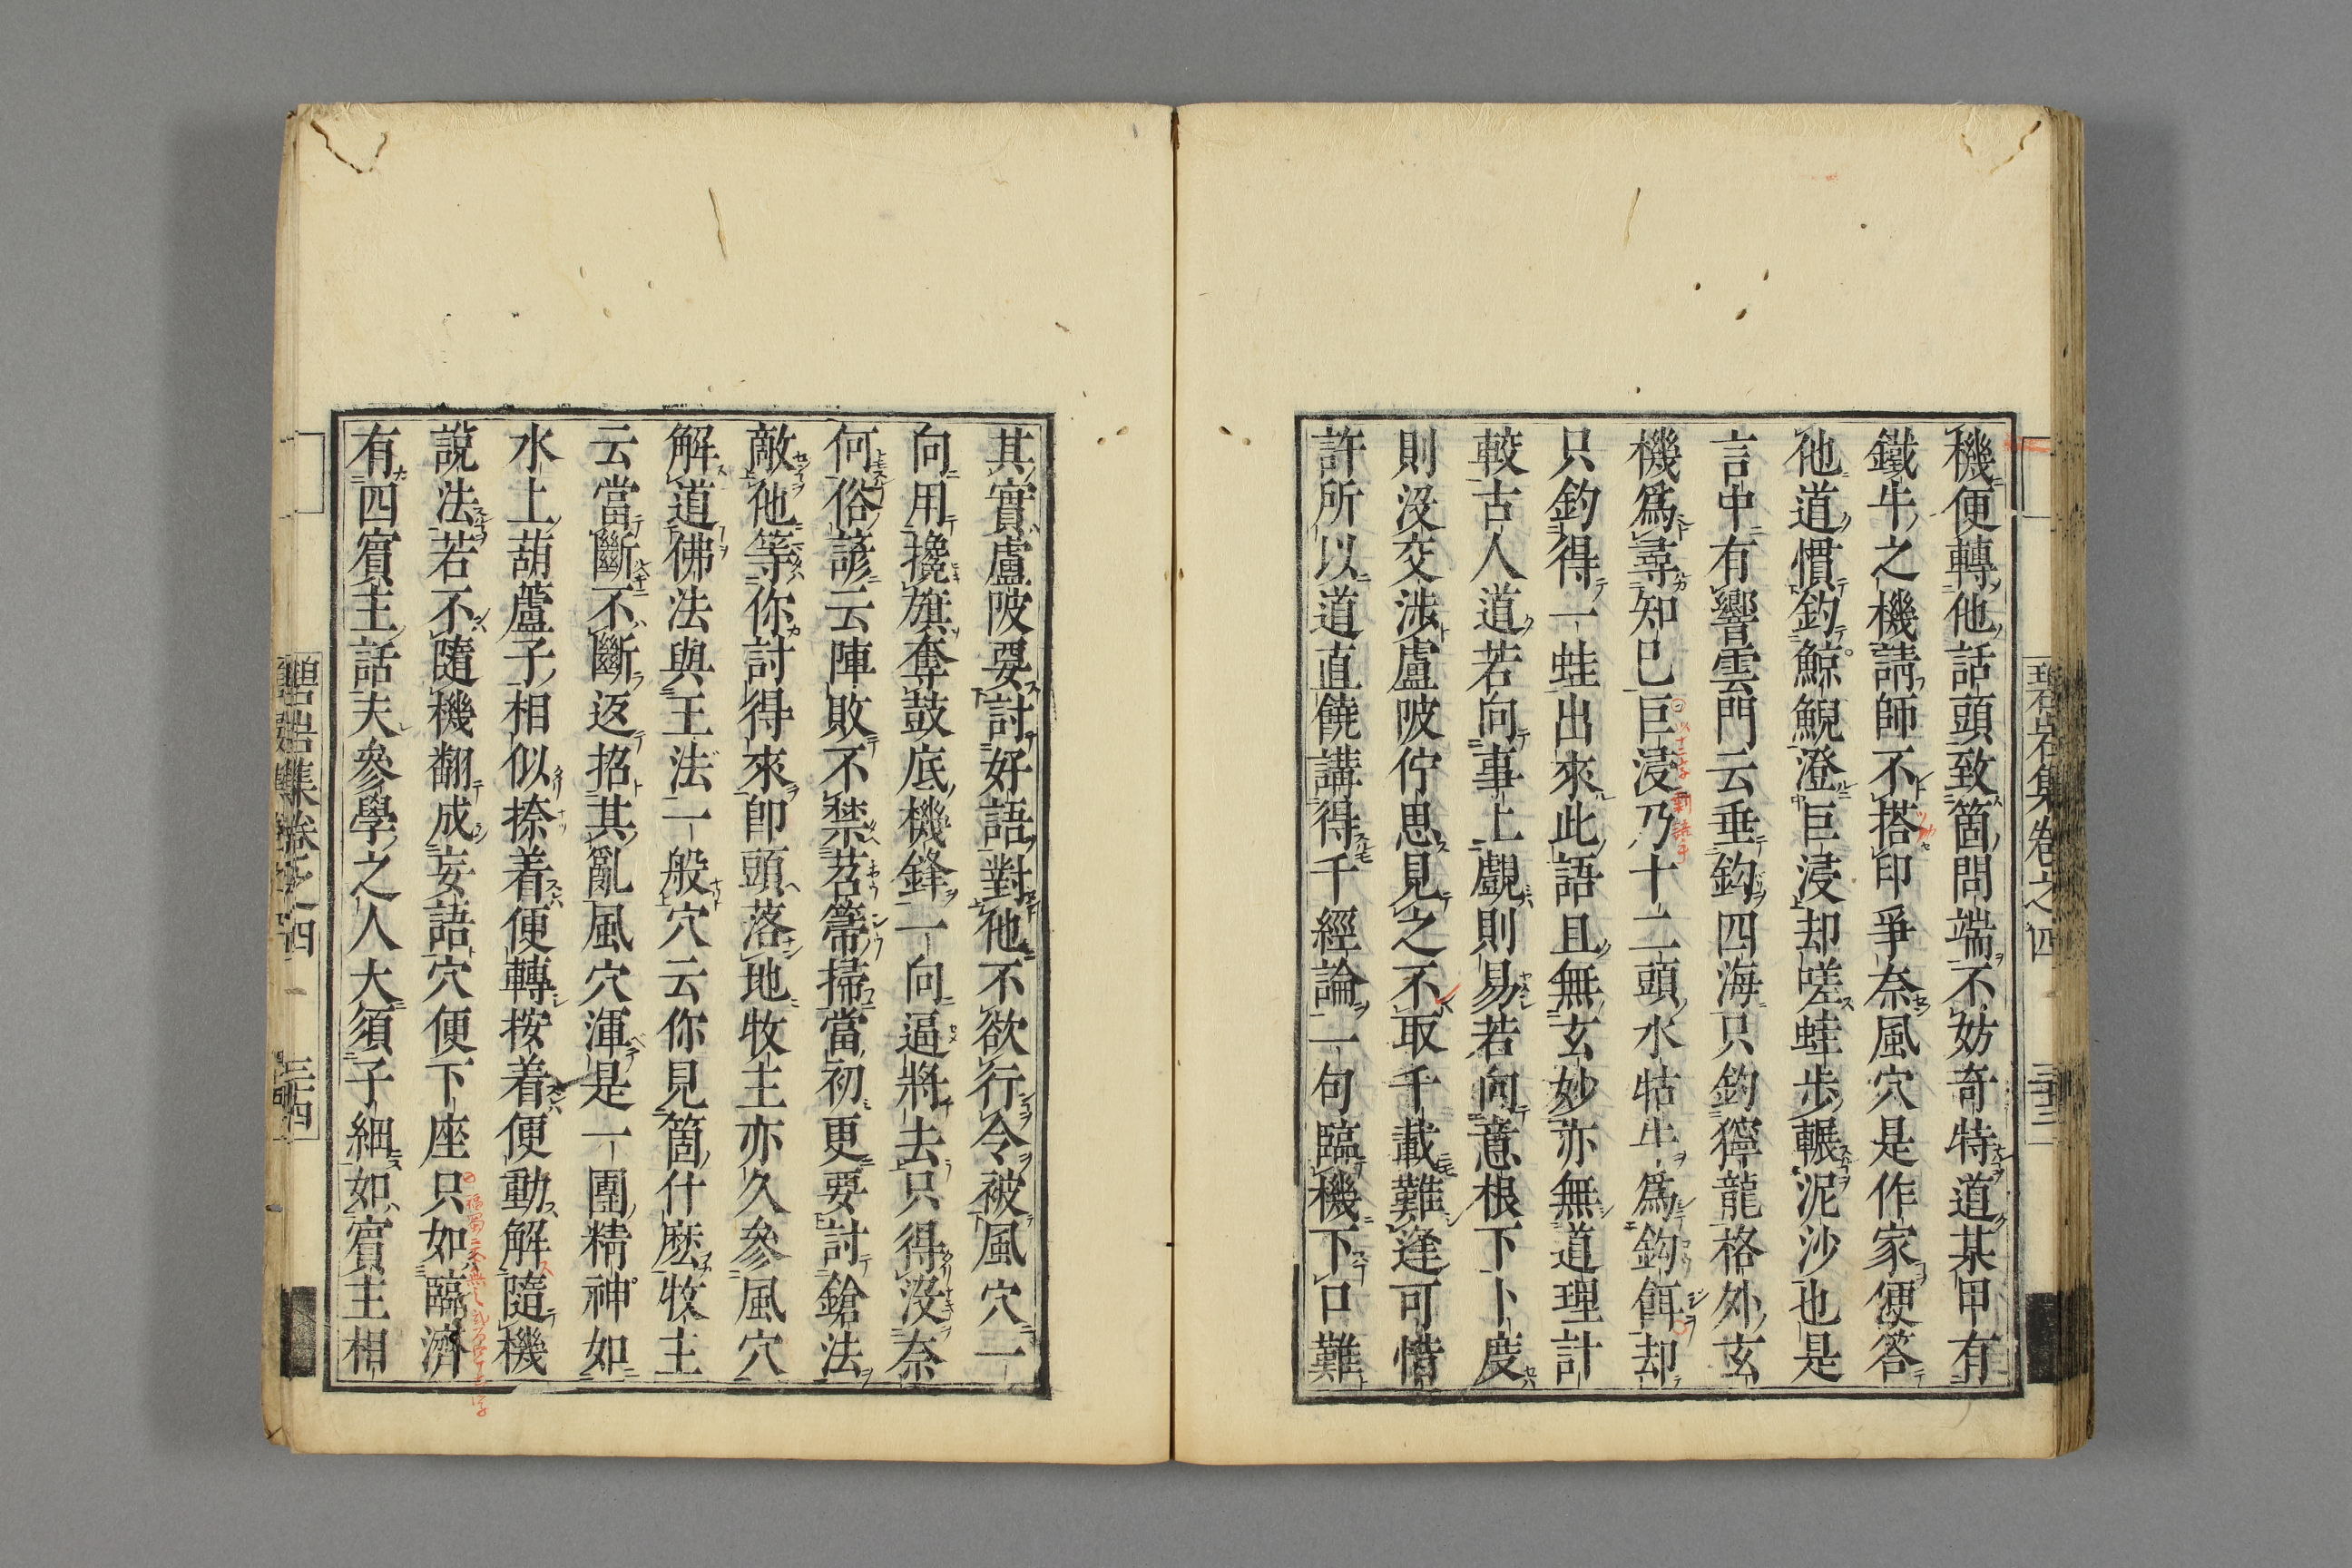 碧岩集卷之四 三十三
機便轉他話頭致箇問端不妨奇特道某甲有
鐵牛之機請師不搭印爭奈風穴是作家便答
他道慣釣鯨鯢澄巨浸却嗟蛙步輾泥沙也是
言中有響雲門云垂鈎四海只釣獰龍格外玄
機爲尋知已巨浸乃十二頭水牯牛爲鈎餌却
只釣得一蛙出來此語且無玄妙亦無道理計
較古人道若向事上覰則易若向意根下卜度
則沒交涉盧陂佇思見之不取千載難逢可惜
許所以道直饒講得千經論一句臨機下口難
其實盧陂要討好語對他不欲行令被風穴一
向用攙旗奪鼓底機鋒一向逼將去只得沒奈
何俗諺云陣敗不禁苕箒掃當初更要討鎗法
敵他等你討得來卽頭落地牧主亦久參風穴
解道佛法與王法一般穴云你見箇什麽牧主
云當斷不斷返招其亂風穴渾是一團精神如
水上葫蘆子相似捺着便轉按着便動解隨機
說法若不隨機翻成妄語穴便下座只如臨濟
有四賓主話夫參學之人大須子細如賓主相
碧岩集卷之四 三十四